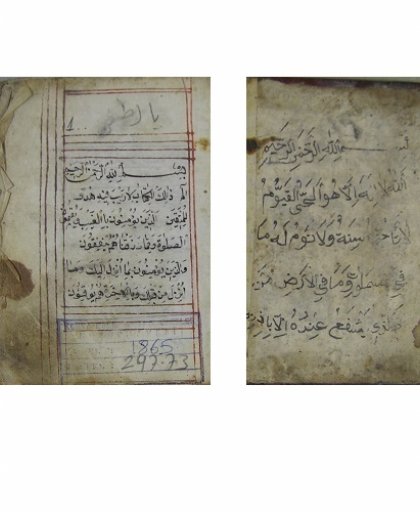 بسم الله الرحمن الرحيم
الم ذلك الكتاب لا ريب فيه هدى
للمتقين الذين يؤمنون بالغيب ويقيمون
الصلوة ومما رزقناهم ينفقون
والذين يؤمنون بما انزل اليك وما
انزل من قبلك وبالاخرة هم يوقنون
1865
297.73
بسم الله الرَّحْمَنِ الرَّحِيمِ
الله لا اله الا هو الحي القيوم
لا تاخذه سنة ولا نوم له ما
في السموات وما في الارض من
ذا الذي يشفع عنده الا باذنه